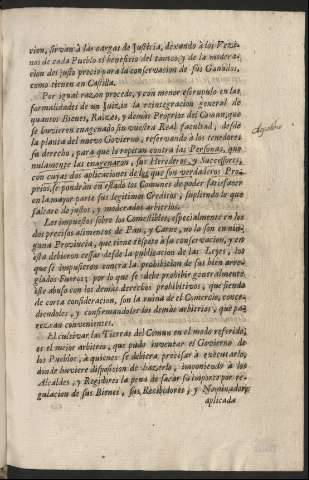 cion, sirvan à las cargas de Justicia, dexando à los Vezi-
nos de cada Pueblo el beneficio del tanteo, y de la modera-
cion del justo precio para la conservacion de sus Ganados,
como tienen en Castilla.
Por igual razon procede, y con menor escrupulo en las
formalidades de un Juizio la reintegracion general de
quantos Bienes, Raizes, y demàs Proprios del Comun, que
se huvieren enagenado sin vuestra Real facultad, desde
la planta del nuevo Govierno, reservando à los tenedores
su derecho, para que lo repitan contra las Personas, que
nulamente las enagenaron, sus Herederos, y Successores,
con cuyas dos aplicaciones de los que son verdaderos Pro-
prios, se pondràn en estado los Comunes de poder satisfacer
en la mayor parte sus legitimos Creditos, supliendo lo que
faltare de justos, y moderados arbitrios.
Los impuestos sobre los Comestibles, especialmente en los
dos precisos alimentos de Pan, y Carne, no lo son en nin-
guna Provincia, que tiene respeto à su conservacion, y en
esta debieron cessar desde la publicacion de las Leyes,
que se impusieron contra la prohibicion de sus bien arre-
glados Fueros; por lo que se debe prohibir generalmente
este abuso con los demàs derechos prohibitivos, que siendo
de corta consideracion, son la ruina de el Comercio, conce-
diendoles, y confirmandoles los demàs arbitrios, que pa-
rezcan convenientes.
El cultivar las Tierras del Comun en el modo referido,
es el mejor arbitrio, que pudo inventar el Govierno de
los Pueblos, à quienes se debiera precisar à executarlo,
donde huviere disposicion de hazerlo, imponiendo à los
Alcaldes, y Regidores la pena de sacar su importe por re-
gulacion de sus Bienes, sus Recibidores, y Nominadores
aplicada